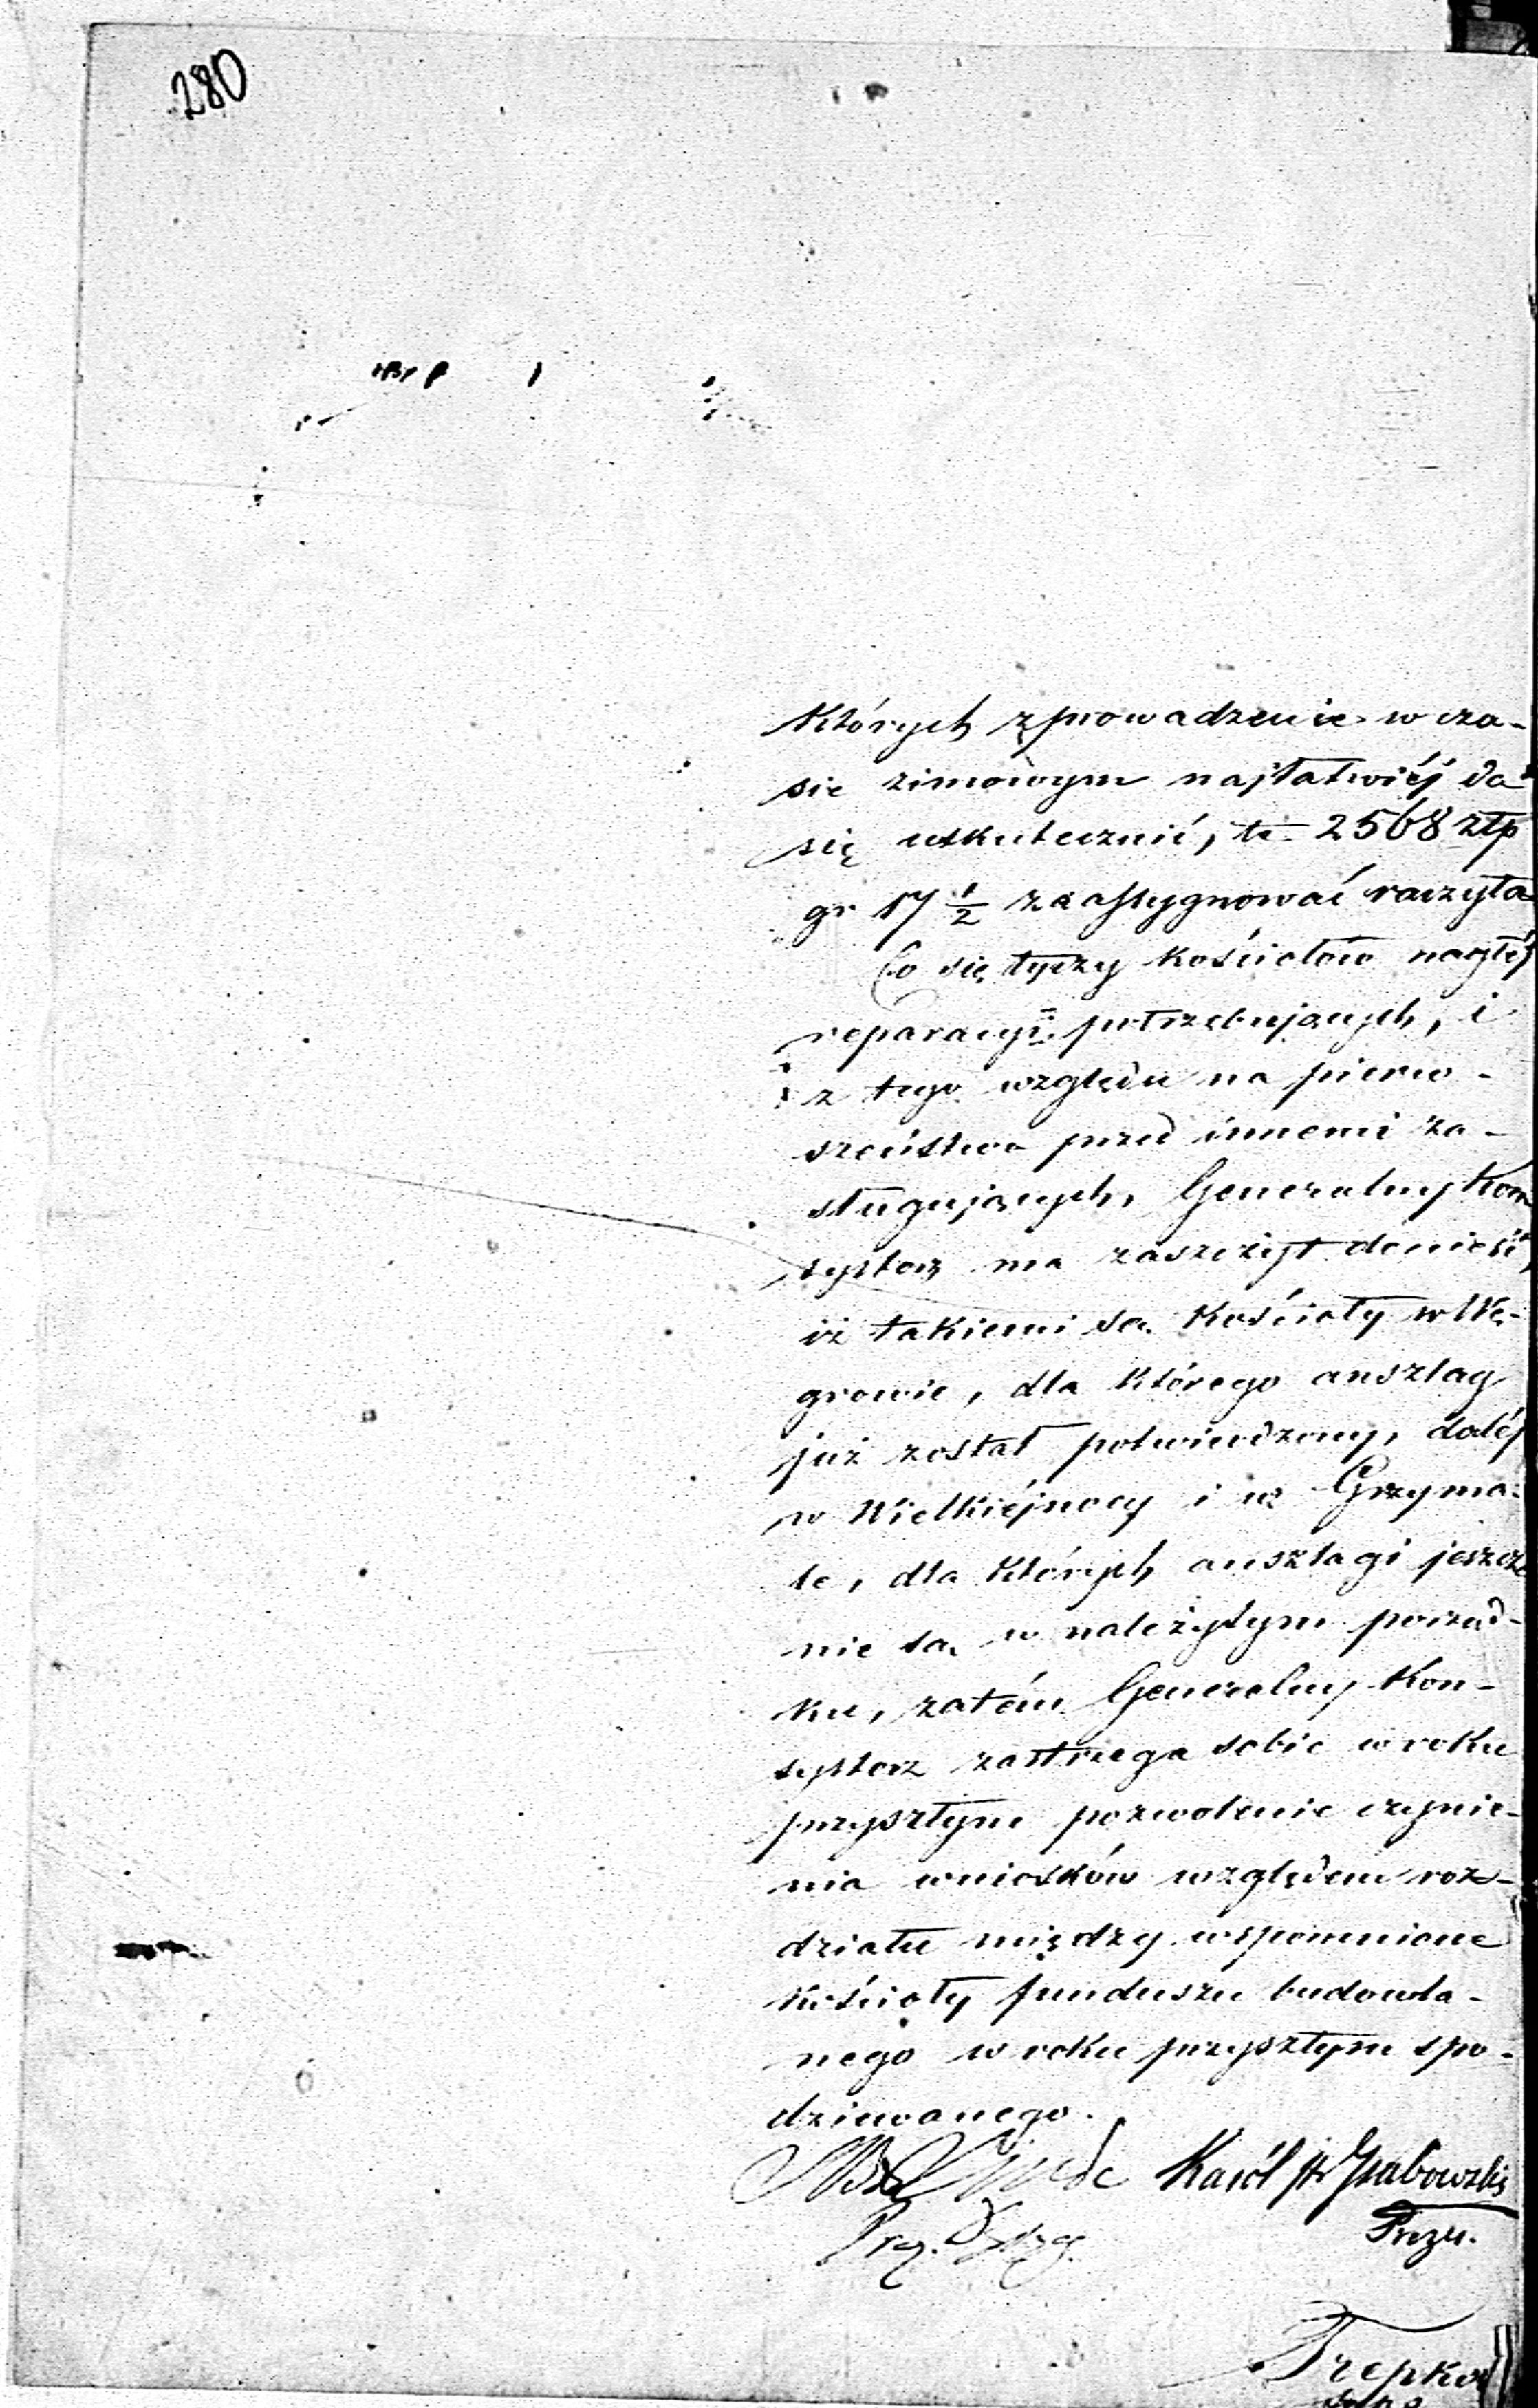 280
których zprowadzenie w cza-
sie zimowym najłatwiéj da
się uskutecznić, te 2568 złp
gr 17 1/2 zaassygnować raczyła
Co się tyczy kościołów nagłéj
reparacyi potrzebujących, i
z tego względu na pierw-
szeństwo przed innemi za-
sługujących, Generalny Kon
systorz ma zaszczyt donieść,
iż takiemi są Kościoły w Wę-
growie, dla którego anszlag
już został potwierdzony, daléj
w Wielkiéjnocy i w Grzyma-
le, dla których anszlagi jeszcze
nie są w należytym porząd-
ku, zatém Generalny Kon-
systorz zastrzega sobie w roku
przyszłym pozwolenie czynie-
nia wniosków względem roz-
działu między wspomnione
kościoły funduszu budowla-
nego w roku przyszłym spo-
dziewanego.
Linde Karól hr Grabowski
Prez. Prezu.
Trepka